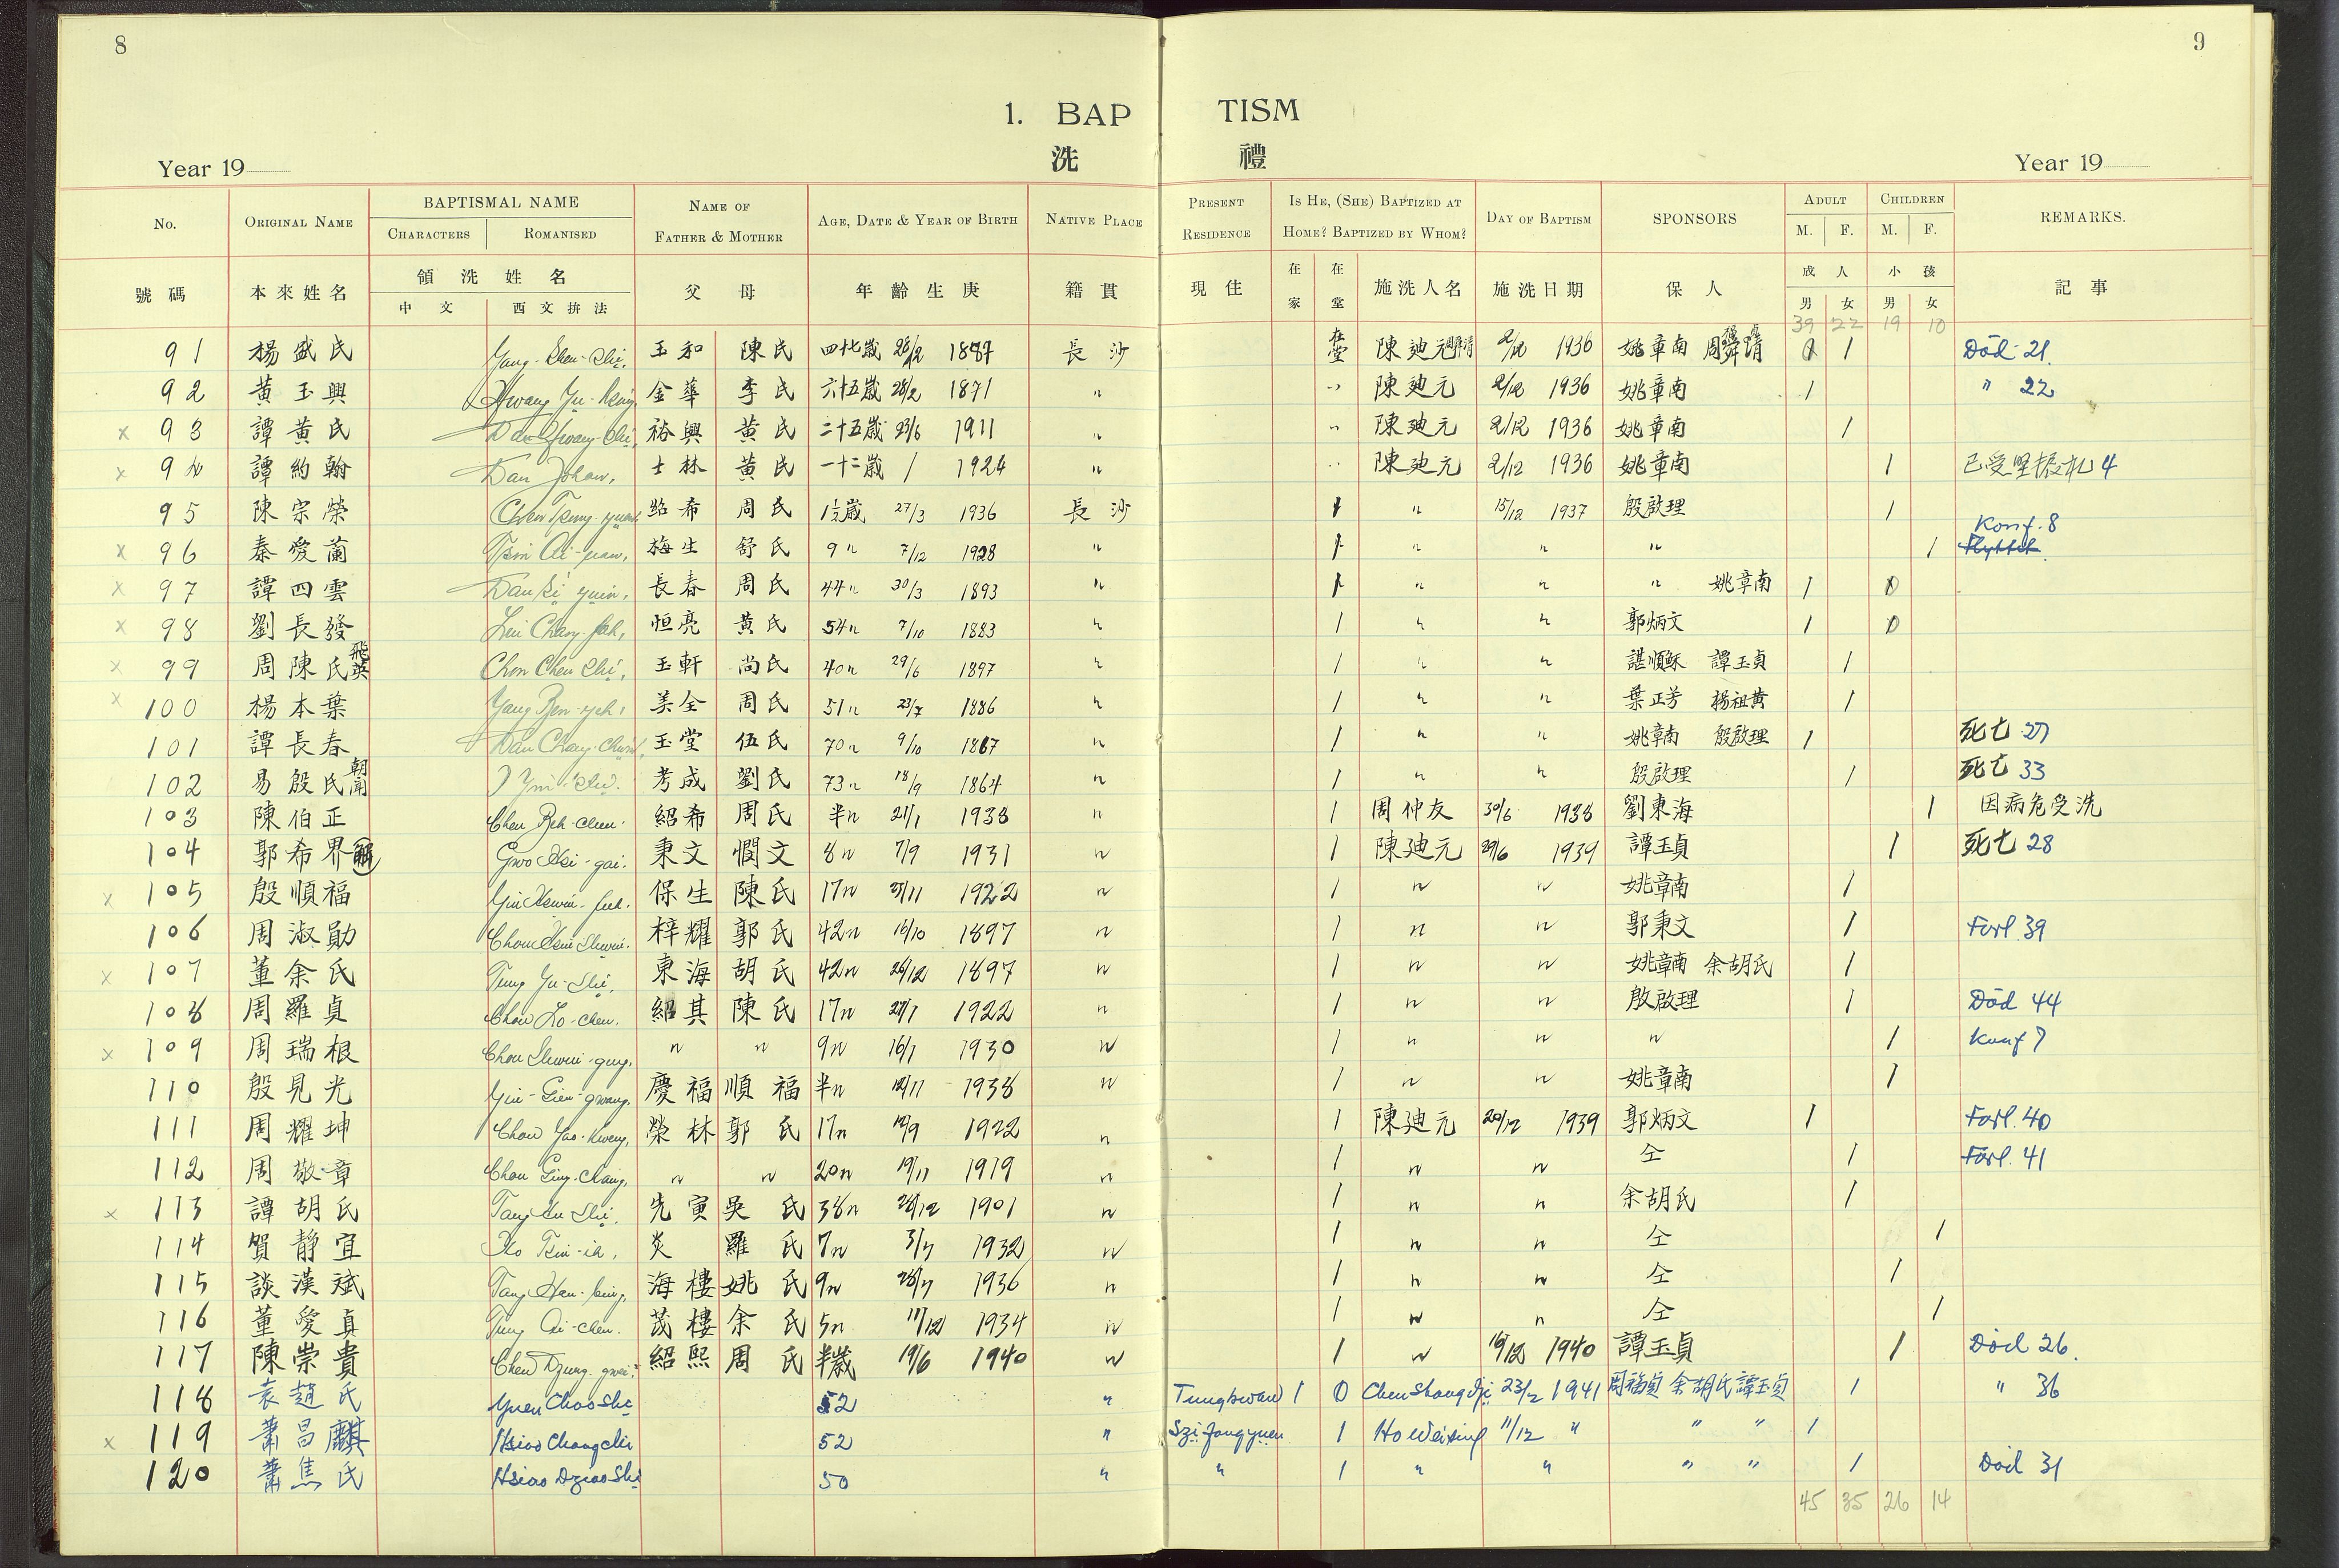 8
9
1. BAP TISM
洗 禮
Year 19 Year 19
No. ORIGINAL NAME BAPTISMAL NAME CHARACTERS ROMANISED NAME OF FATHER & MOTHER AGE, DATE & YEAR OF BIRTH NATIVE PLACE PRESENT RESIDENCE IS HE, (SHE) BAPTIZED AT HOME? BAPTIZED BY WHOM? DAY OF BAPTISM SPONSORS ADULT M. F. CHILDREN M. F. REMARKS.
號碼 本來姓名 領洗姓名 中文 西文拚法 父 母 年齡生庚 籍貫 現住 在家 在堂 施洗人名 施洗日期 保人 成人 男 女 小孩 男 女 記事
39 22 19 10
91 楊盛氏 Yang-Shen-Shi, 玉和 陳氏 四七歲 1887 長沙 在堂 陳廸元 2/12 1936 姚章南 1 Död 21
92 黃玉興 Hwang Yu-hsing, 金華 李氏 六十五歲 28/2 1871 " " 陳廸元 2/12 1936 姚章南 1 " 22
x 93 譚黃氏 Dan Hwang-Shi, 裕興 黃氏 二十五歲 23/6 1911 " " 陳廸元 2/12 1936 姚章南 1
x 94 譚約翰 Dan Johan, 士林 黃氏 一十二歲 / 1924 " " 陳廸元 2/12 1936 姚章南 1 已受堅振礼 4
95 陳宗榮 紹希 周氏 1½歲 27/3 1936 長沙 1 " 15/12 1937 殷啟理 1
x 96 秦愛蘭 梅生 舒氏 9 " 7/12 1928 " 1 " " " 1 Konf. 8 Flyttet
x 97 譚四雲 Dan Si yuin, 長春 周氏 44 " 30/3 1893 " 1 " " " 姚章南 1 0
x 98 劉長發 恒亮 黃氏 54 " 7/10 1883 " 1 " " 郭炳文 1 0
x 99 周陳氏飛英 Chou Chen Shi, 玉軒 尚氏 40 " 29/6 1897 " 1 " " 諶順穌 譚玉貞 1
x 100 楊本葉 Yang Ben-yeh, 美全 周氏 51 " 23/7 1886 " 1 " " 葉正芳 楊祖黃 1
101 譚長春 Dan Chang-Chwin, 玉堂 伍氏 70 " 9/10 1867 " 1 " " 姚章南 殷啟理 1 死亡 27
102 易殷氏朝聞 考成 劉氏 73 " 18/9 1864 " 1 " " 殷啟理 1 死亡 33
103 陳伯正 Chen Beh-Chen. 紹希 周氏 半 " 21/1 1938 " 1 周仲友 30/6 1938 劉東海 1 因病危受洗
104 郭希界(解) Gwo Hsi-gai. 秉文 憪文 8 " 7/9 1931 " 1 陳廸元 29/6 1939 譚玉貞 1 死亡 28
x 105 殷順福 保生 陳氏 17 " 1922 " 1 " " 姚章南 1
106 周淑勛 梓耀 郭氏 42 " 16/10 1897 " 1 " " 郭秉文 1 Forl. 39
x 107 董余氏 Tung Yu-Shi, 東海 胡氏 42 " 26/12 1897 " 1 " " 姚章南 余胡氏 1
108 周羅貞 Chou Lo-Chen. 紹其 陳氏 17 " 1922 " 1 " " 殷啟理 1 Död 44
x 109 周瑞根 " " 9 " 16/1 1930 " 1 " " " 1 Konf 7
110 殷見光 Yin-Gien-gwang, 慶福 順福 半 " 1938 " 1 " " 姚章南 1
111 周耀坤 榮林 郭氏 17 " 1922 " 1 陳廸元 20/12 1939 郭炳文 1 Forl. 40
112 周敬章 Chou Ging-Chang, " " 20 " 19/11 1919 " 1 " " 仝 1 Forl. 41
x 113 譚胡氏 先寅 吳氏 38 " 28/12 1901 " 1 " " 余胡氏 1
114 賀靜宜 炎 羅氏 7 " 3/7 1932 " 1 " " 仝 1
115 談漢斌 海樓 姚氏 9 " 28/7 1936 " 1 " " 仝 1
116 董愛貞 Tung Ai-Chen. 茂樓 余氏 5 " 11/12 1934 " 1 " " 仝 1
117 陳崇貴 Chen Dzung-gwei, 紹熙 周氏 半歲 19/6 1940 " 1 " 1940 譚玉貞 1 Död 26.
118 袁趙氏 Yuen Chao Shi 52 " Tungkwan 1 0 Chen Shang Dji 23/2 1941 周福貞 余胡氏 譚玉貞 1 " 36
x 119 蕭昌麒 Hsiao Chang chi 52 " Szi fang yuen 1 Ho Weising 11/12 " " " 1
120 蕭焦氏 Hsiao Dziao Shi 50 " " 1 " " " " 1 Död 31
45 35 26 14